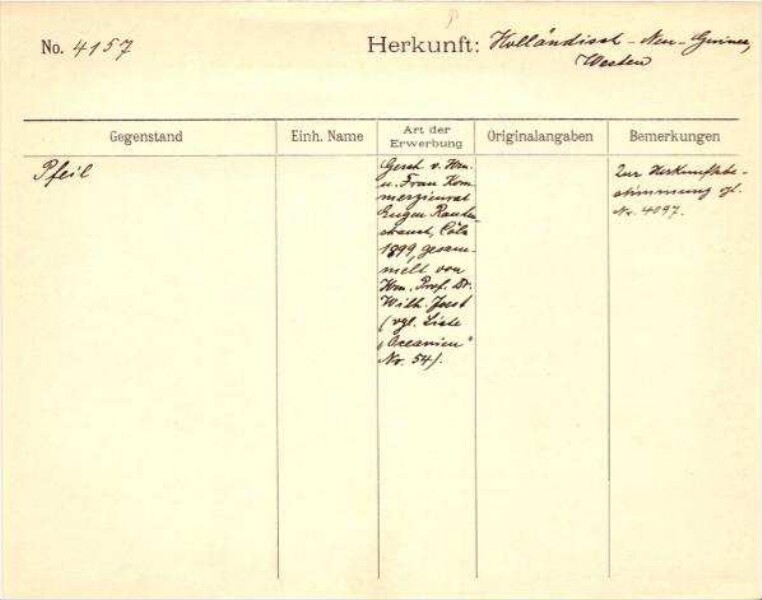 No. 4157
Herkunft: Holländisch-Neu-Guinea,
Westen
Gegenstand
Einh. Name
Art der
Erwerbung
Originalangaben
Bemerkungen
Pfeil
Gesch. v. Hrn.
u. Frau Kom-
merzienrat
Eugen Rauten-
strauch, Cöln
1899, gesam-
melt von
Hrn. Prof. Dr.
Wilh. Joest
(vgl. Liste
„Oceanien"
Nr. 54).
Zur Herkunftsbe-
stimmung vgl.
Nr. 4097.